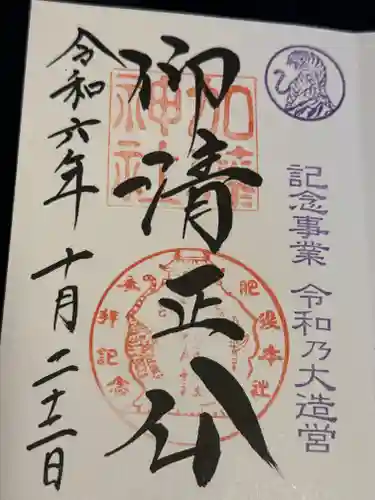 記念事業 令和乃大造営
仰清正公
加藤神社
肥後本社
参拝記念
令和六年 十月二十二日